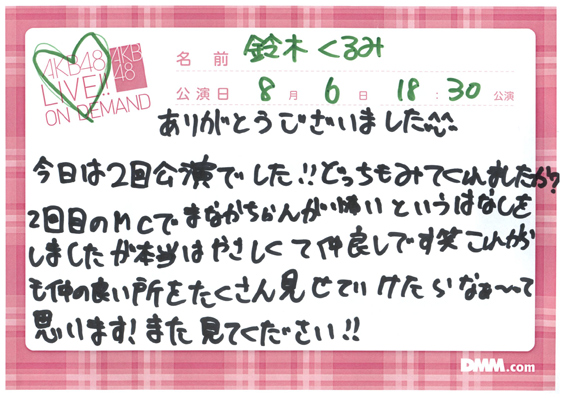 AKB48
LIVE!!
ON DEMAND
AKB
48
名前 鈴木くるみ
公演日 8月6日 18:30公演
ありがとうございました^^
今日は2回公演でした!!どっちもみてくれましたか?
2回目のMCでまながちゃんが怖いというはなしを
しましたが本当はやさしくて仲良しです笑 これから
も仲の良い所をたくさん見せていけたらなぁ〜って
思います!また見てください!!
DMM.com